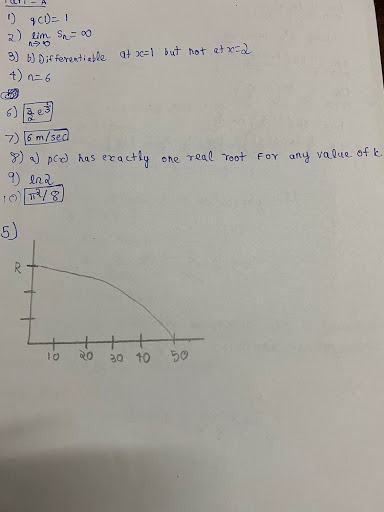 Part - A
1) g(1) = 1
2) lim n→∞ Sn = ∞
3) b) Differentiable at x=1 but not at x=2
4) n=6
6)
7) 6 m/sec
8) a) p(x) has exactly one real root For any value of k
9) ln2
10) π²/8
5)
R
10 20 30 40 50